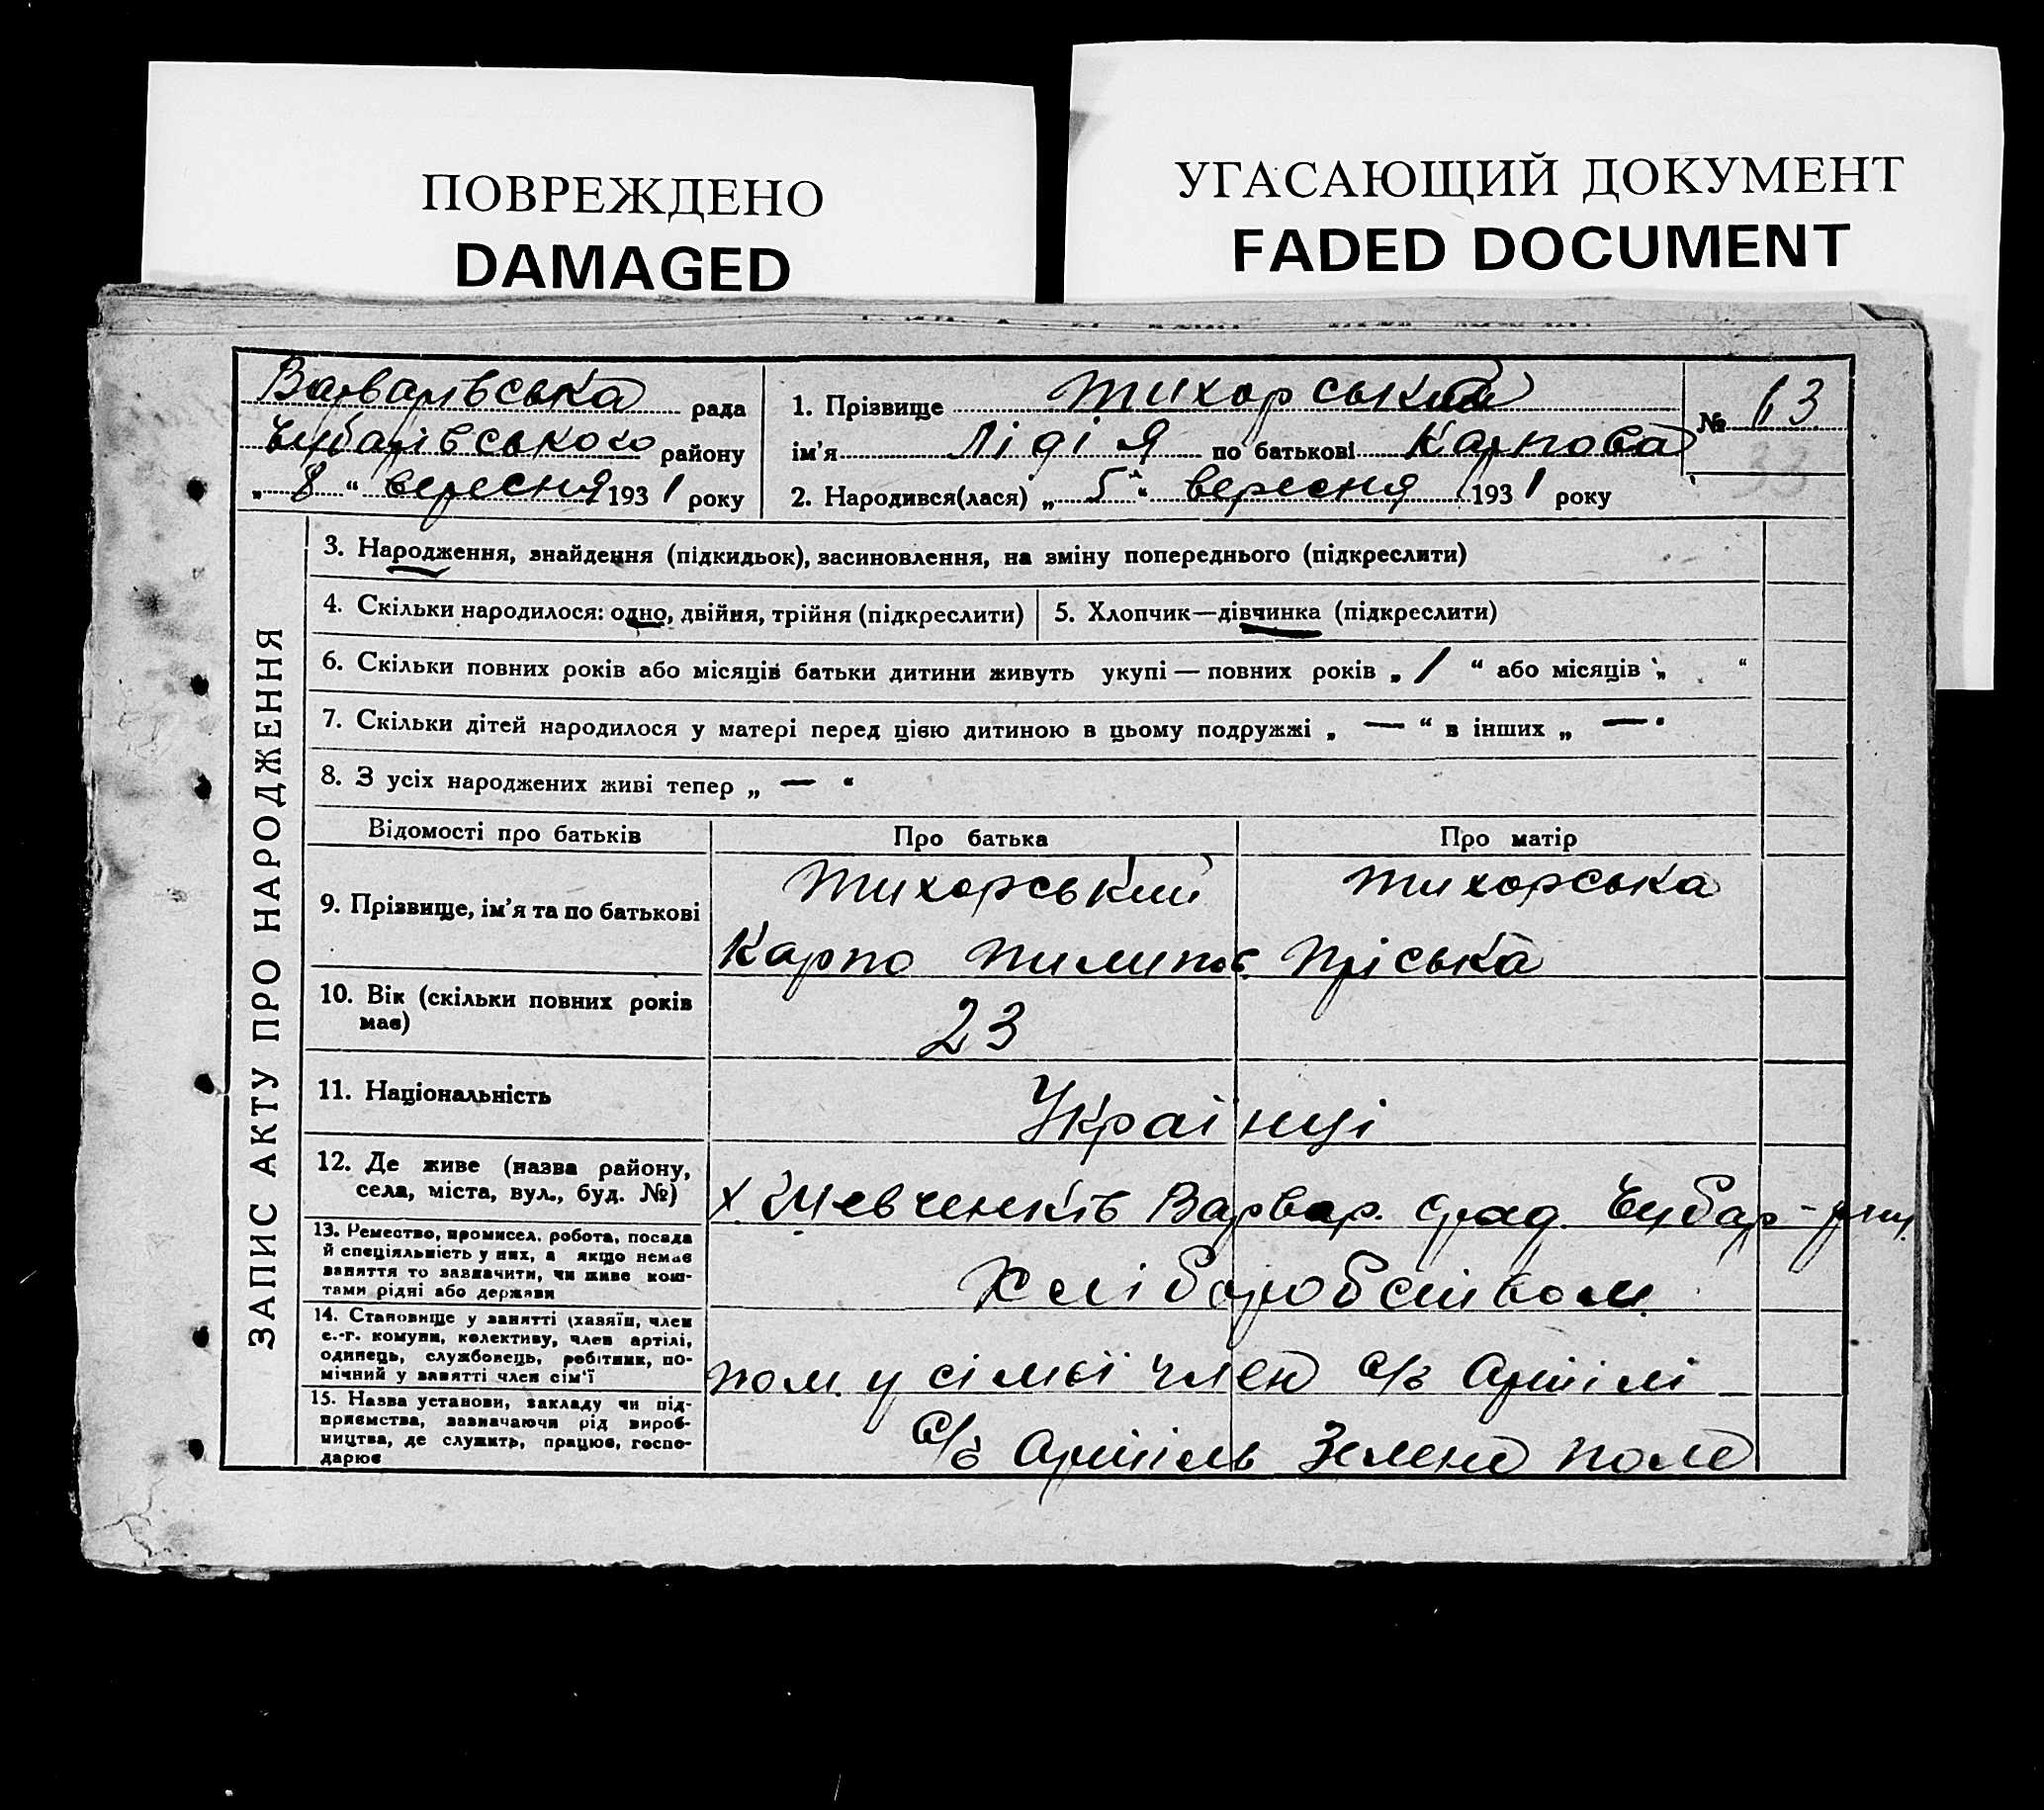 ПОВРЕЖДЕНО
DAMAGED
УГАСАЮЩИЙ ДОКУМЕНТ
FADED DOCUMENT
Варварівська рада
Чубарівського району
„ 8 “ вересня 1931 року
1. Прізвище Тихорська
ім’я Лідія по батькові Карпова
2. Народився(лася) „ 5 “ вересня 1931 року
№ 13
33
ЗАПИС АКТУ ПРО НАРОДЖЕННЯ
3. Народження, знайдення (підкидьок), засиновлення, на зміну попереднього (підкреслити)
4. Скільки народилося: одно, двійня, трійня (підкреслити)
5. Хлопчик—дівчинка (підкреслити)
6. Скільки повних років або місяців батьки дитини живуть укупі — повних років „ 1 “ або місяців „ “
7. Скільки дітей народилося у матері перед цією дитиною в цьому подружжі „ — “ в інших „ — “
8. З усіх народжених живі тепер „ — “
Відомості про батьків
Про батька
Про матір
9. Прізвище, ім’я та по батькові
Тихорський
Карпо Пилипов.
Тихорська
Пріська
10. Вік (скільки повних років
має)
23
11. Національність
Українці
12. Де живе (назва району,
села, міста, вул., буд. №)
х. Шевченків Варвар. с/рад. Чубар-
13. Ремество, промисел. робота, посада
й спеціяльність у них, а якщо немає
заняття то зазначити, чи живе кош-
тами рідні або держави
Хліборобством
14. Становище у занятті (хазяїн, член
с.-г. комуни, колективу, член артілі,
одинець, службовець, робітник, по-
мічний у занятті член сім’ї
пом. у сімьї член с/г Артілі
15. Назва установи, закладу чи під-
приємства, зазначаючи рід вироб-
ництва, де служить, працює, госпо-
дарює
с/г Артіль Зелене поле